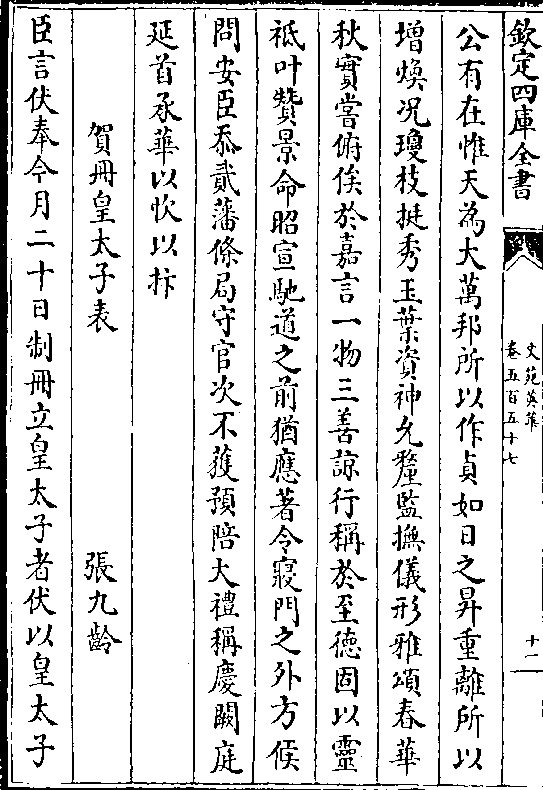 欽定四庫全書
文苑英華
卷五百五十七
十二
公有在惟天為大萬邦所以作貞如日之昇重離所以
増煥况瓊枝挺秀玉葉資神允釐監撫儀形雅頌春華
秋實嘗俯俟於嘉言一物三善諒行稱於至德固以靈
祗叶賛景命昭宣馳道之前猶應著令寢門之外方候
問安臣忝貳藩條局守官次不獲預陪大禮稱慶闕庭
延首承華以忭以抃
賀冊皇太子表
張九齡
臣言伏奉今月二十日制冊立皇太子者伏以皇太子